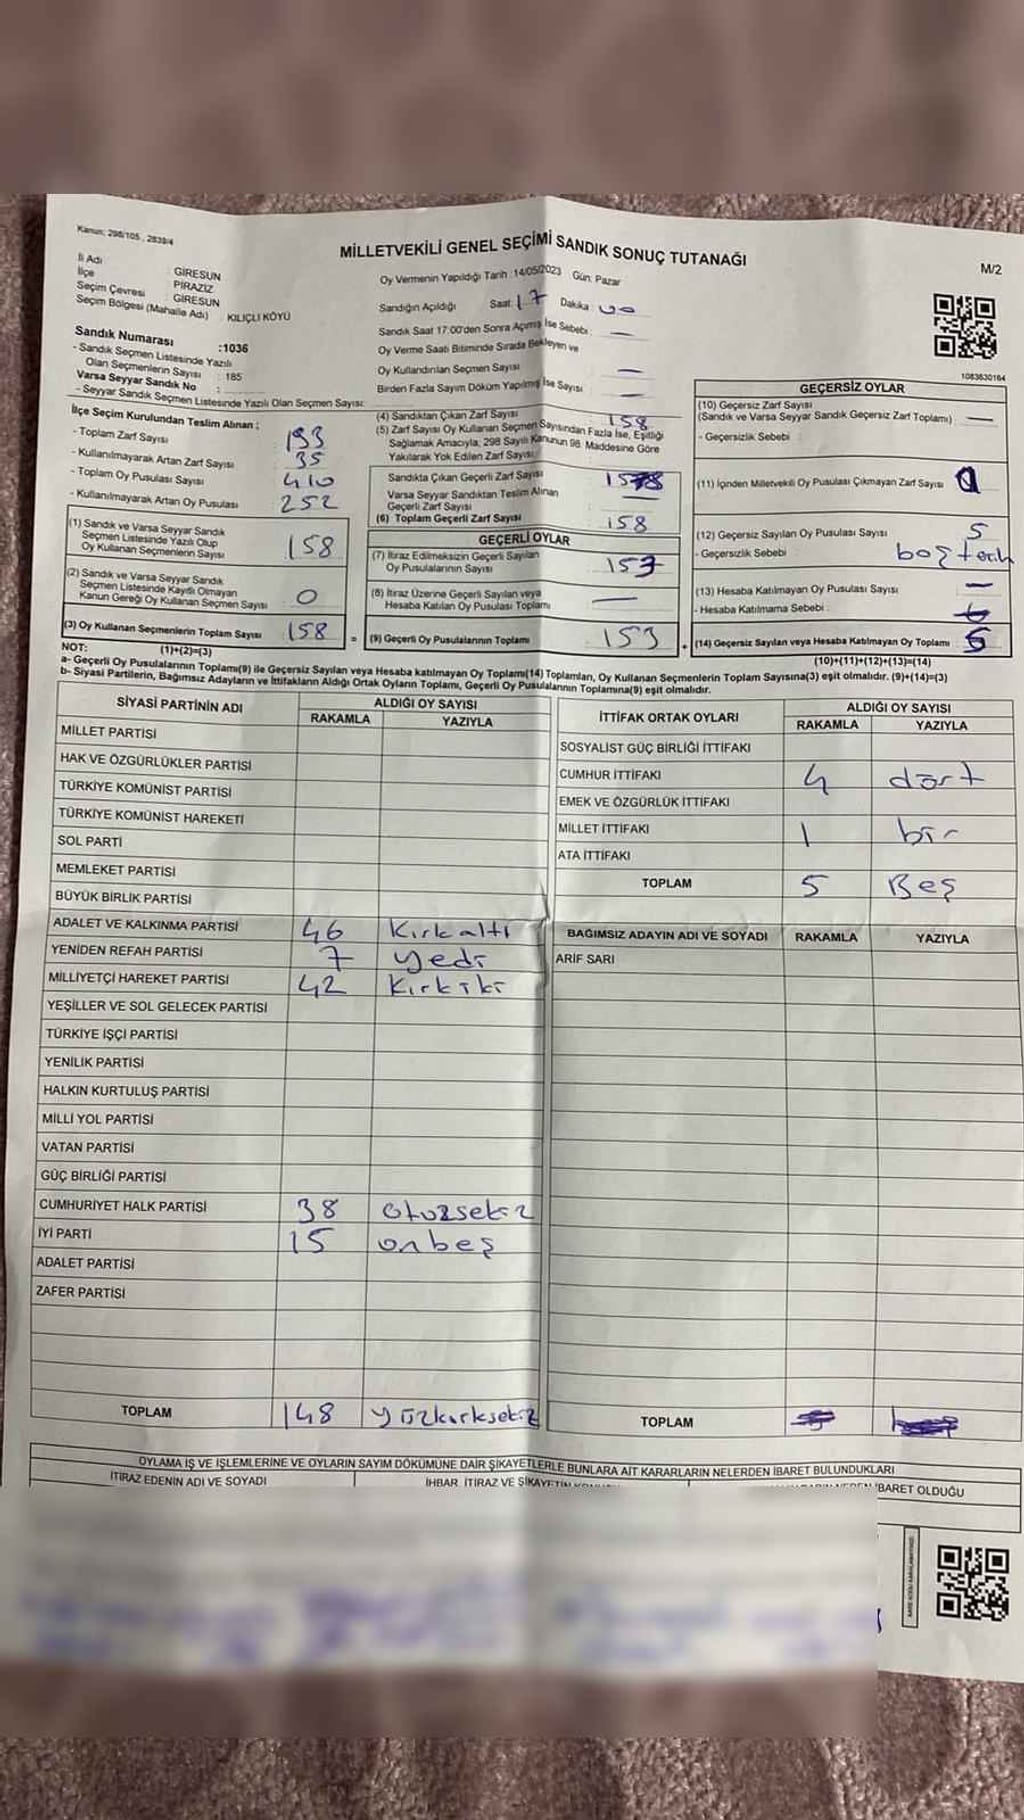 Kanun; 298/105, 2839/4
MİLLETVEKİLİ GENEL SEÇİMİ SANDIK SONUÇ TUTANAĞI
M/2
İl Adı GİRESUN
İlçe PİRAZİZ
Seçim Çevresi GİRESUN
Seçim Bölgesi (Mahalle Adı) KILIÇLI KÖYÜ
Sandık Numarası :1036
- Sandık Seçmen Listesinde Yazılı
Olan Seçmenlerin Sayısı : 185
Varsa Seyyar Sandık No :
- Seyyar Sandık Seçmen Listesinde Yazılı Olan Seçmen Sayısı:
Oy Vermenin Yapıldığı Tarih :14/05/2023 Gün: Pazar
Sandığın Açıldığı Saat: 17 Dakika 00
Sandık Saat 17:00'den Sonra Açılmış İse Sebebi: —
Oy Verme Saati Bitiminde Sırada Bekleyen ve
Oy Kullandırılan Seçmen Sayısı —
Birden Fazla Sayım Döküm Yapılmış İse Sayısı —
1083630164
İlçe Seçim Kurulundan Teslim Alınan ;
- Toplam Zarf Sayısı 193
- Kullanılmayarak Artan Zarf Sayısı 35
- Toplam Oy Pusulası Sayısı 410
- Kullanılmayarak Artan Oy Pusulası 252
(1) Sandık ve Varsa Seyyar Sandık
Seçmen Listesinde Yazılı Olup
Oy Kullanan Seçmenlerin Sayısı 158
(2) Sandık ve Varsa Seyyar Sandık
Seçmen Listesinde Kayıtlı Olmayan
Kanun Gereği Oy Kullanan Seçmen Sayısı 0
(3) Oy Kullanan Seçmenlerin Toplam Sayısı 158
(1)+(2)=(3)
(4) Sandıktan Çıkan Zarf Sayısı 158
(5) Zarf Sayısı Oy Kullanan Seçmen Sayısından Fazla İse, Eşitliği
Sağlamak Amacıyla; 298 Sayılı Kanunun 98. Maddesine Göre
Yakılarak Yok Edilen Zarf Sayısı —
Sandıkta Çıkan Geçerli Zarf Sayısı
Varsa Seyyar Sandıktan Teslim Alınan
Geçerli Zarf Sayısı —
(6) Toplam Geçerli Zarf Sayısı 158
GEÇERLİ OYLAR
(7) İtiraz Edilmeksizin Geçerli Sayılan
Oy Pusulalarının Sayısı 153
(8) İtiraz Üzerine Geçerli Sayılan veya
Hesaba Katılan Oy Pusulası Toplamı —
= (9) Geçerli Oy Pusulalarının Toplamı 153
GEÇERSİZ OYLAR
(10) Geçersiz Zarf Sayısı
(Sandık ve Varsa Seyyar Sandık Geçersiz Zarf Toplamı) —
- Geçersizlik Sebebi :
(11) İçinden Milletvekili Oy Pusulası Çıkmayan Zarf Sayısı
(12) Geçersiz Sayılan Oy Pusulası Sayısı 5
- Geçersizlik Sebebi
(13) Hesaba Katılmayan Oy Pusulası Sayısı —
- Hesaba Katılmama Sebebi :
(14) Geçersiz Sayılan veya Hesaba Katılmayan Oy Toplamı 5
(10)+(11)+(12)+(13)=(14)
NOT:
a- Geçerli Oy Pusulalarının Toplamı(9) ile Geçersiz Sayılan veya Hesaba katılmayan Oy Toplamı(14) Toplamları, Oy Kullanan Seçmenlerin Toplam Sayısına(3) eşit olmalıdır. (9)+(14)=(3)
b- Siyasi Partilerin, Bağımsız Adayların ve İttifakların Aldığı Ortak Oyların Toplamı, Geçerli Oy Pusulalarının Toplamına(9) eşit olmalıdır.
SİYASİ PARTİNİN ADI ALDIĞI OY SAYISI
RAKAMLA YAZIYLA
MİLLET PARTİSİ
HAK VE ÖZGÜRLÜKLER PARTİSİ
TÜRKİYE KOMÜNİST PARTİSİ
TÜRKİYE KOMÜNİST HAREKETİ
SOL PARTİ
MEMLEKET PARTİSİ
BÜYÜK BİRLİK PARTİSİ
ADALET VE KALKINMA PARTİSİ 46 Kırkaltı
YENİDEN REFAH PARTİSİ 7 yedi
MİLLİYETÇİ HAREKET PARTİSİ 42 Kırkiki
YEŞİLLER VE SOL GELECEK PARTİSİ
TÜRKİYE İŞÇİ PARTİSİ
YENİLİK PARTİSİ
HALKIN KURTULUŞ PARTİSİ
MİLLİ YOL PARTİSİ
VATAN PARTİSİ
GÜÇ BİRLİĞİ PARTİSİ
CUMHURİYET HALK PARTİSİ 38 otuzsekiz
İYİ PARTİ 15 onbeş
ADALET PARTİSİ
ZAFER PARTİSİ
TOPLAM 148 yüzkırksekiz
İTTİFAK ORTAK OYLARI ALDIĞI OY SAYISI
RAKAMLA YAZIYLA
SOSYALİST GÜÇ BİRLİĞİ İTTİFAKI
CUMHUR İTTİFAKI 4 dört
EMEK VE ÖZGÜRLÜK İTTİFAKI
MİLLET İTTİFAKI 1 bir
ATA İTTİFAKI
TOPLAM 5 Beş
BAĞIMSIZ ADAYIN ADI VE SOYADI RAKAMLA YAZIYLA
ARİF SARI
TOPLAM
OYLAMA İŞ VE İŞLEMLERİNE VE OYLARIN SAYIM DÖKÜMÜNE DAİR ŞİKAYETLERLE BUNLARA AİT KARARLARIN NELERDEN İBARET BULUNDUKLARI
İTİRAZ EDENİN ADI VE SOYADI
İHBAR İTİRAZ VE ŞİKAYETİN
İBARET OLDUĞU